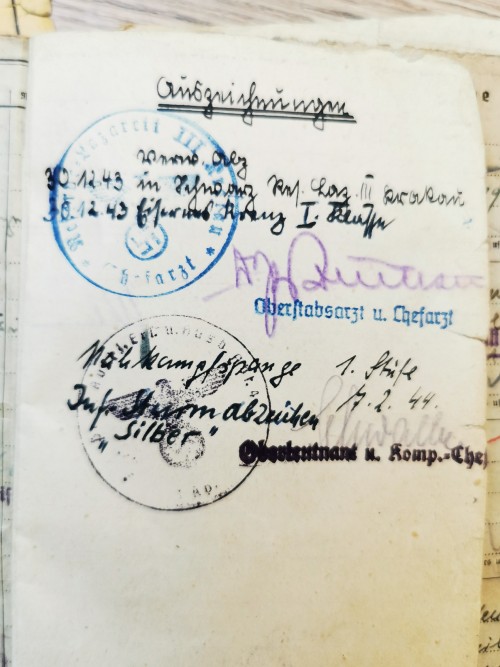 Auszeichnungen
Verw. Abz
30.12.43 in Schwarz Res. Laz. III Krakau
30.12.43 Eisernes Kreuz I. Klasse
Oberstabsarzt u. Chefarzt
Nahkampfspange 1. Stufe
Inf. Sturmabzeichen 17.2.44.
"Silber"
Oberleutnant u. Komp.-Chef
Lazarett III
Chefarzt